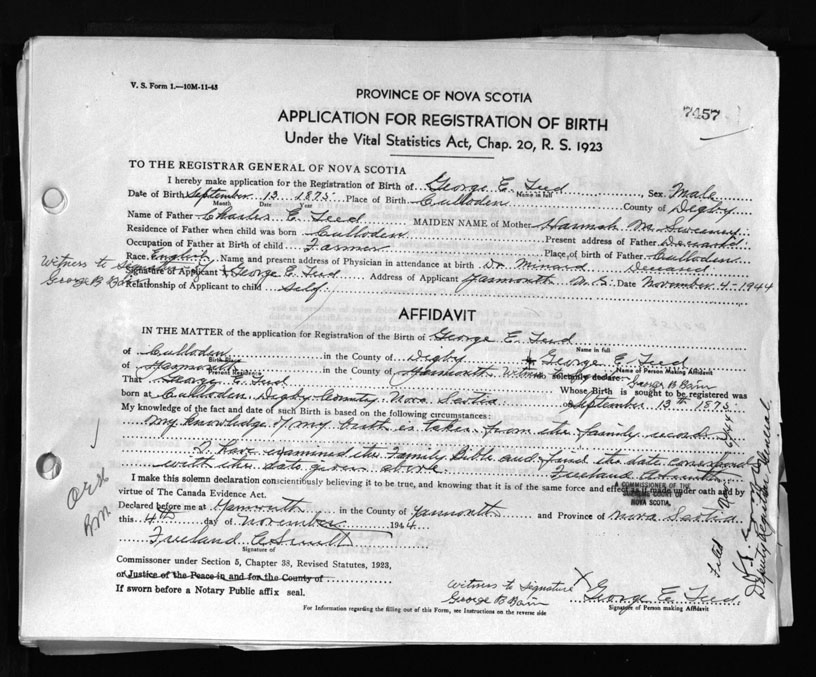 V. S. Form 1.—10M-11-43
PROVINCE OF NOVA SCOTIA
7457
APPLICATION FOR REGISTRATION OF BIRTH
Under the Vital Statistics Act, Chap. 20, R. S. 1923
TO THE REGISTRAR GENERAL OF NOVA SCOTIA
I hereby make application for the Registration of Birth of George E. Teed Sex Male
Name in full
Date of Birth September 13 1875 Place of Birth Culloden County of Digby
Month Date Year
Name of Father Charles E. Teed MAIDEN NAME of Mother Hannah Mc Sweeney
Residence of Father when child was born Culloden Present address of Father Deceased
Occupation of Father at Birth of child Farmer Place of birth of Father Culloden
Race English Name and present address of Physician in attendance at birth Dr. Minard Deceased
Witness to Signature
George B Bain
Signature of Applicant X George E. Teed Address of Applicant Yarmouth N.S. Date November 4-1944
Relationship of Applicant to child Self
AFFIDAVIT
IN THE MATTER of the application for Registration of the Birth of George E. Teed
Name in full
of Culloden in the County of Digby I George E. Teed
Birth Place Name of Person Making Affidavit
of Yarmouth in the County of Yarmouth Witness do solemnly declare: George B Bain
Present Residence
That George E. Teed Whose Birth is sought to be registered was
born at Culloden Digby County Nova Scotia on September 13th 1875
My knowledge of the fact and date of such Birth is based on the following circumstances:
My knowledge of my birth is taken from the family records.
I have examined the Family Bible and find the date correspond
with the date given above Freeland
A COMMISSIONER OF THE
SUPREME COURT OF
NOVA SCOTIA.
I make this solemn declaration conscientiously believing it to be true, and knowing that it is of the same force and effect as if made under oath and by
virtue of The Canada Evidence Act.
Declared before me at Yarmouth in the County of Yarmouth and Province of Nova Scotia
this 4th day of November 1944
Freeland
Signature of
Commissioner under Section 5, Chapter 38, Revised Statutes, 1923,
or Justice of the Peace in and for the County of
If sworn before a Notary Public affix seal.
Witness to Signature
George B Bain
X George E. Teed
Signature of Person making Affidavit
For Information regarding the filling out of this Form, see Instructions on the reverse side
Filed
Deputy Registrar General